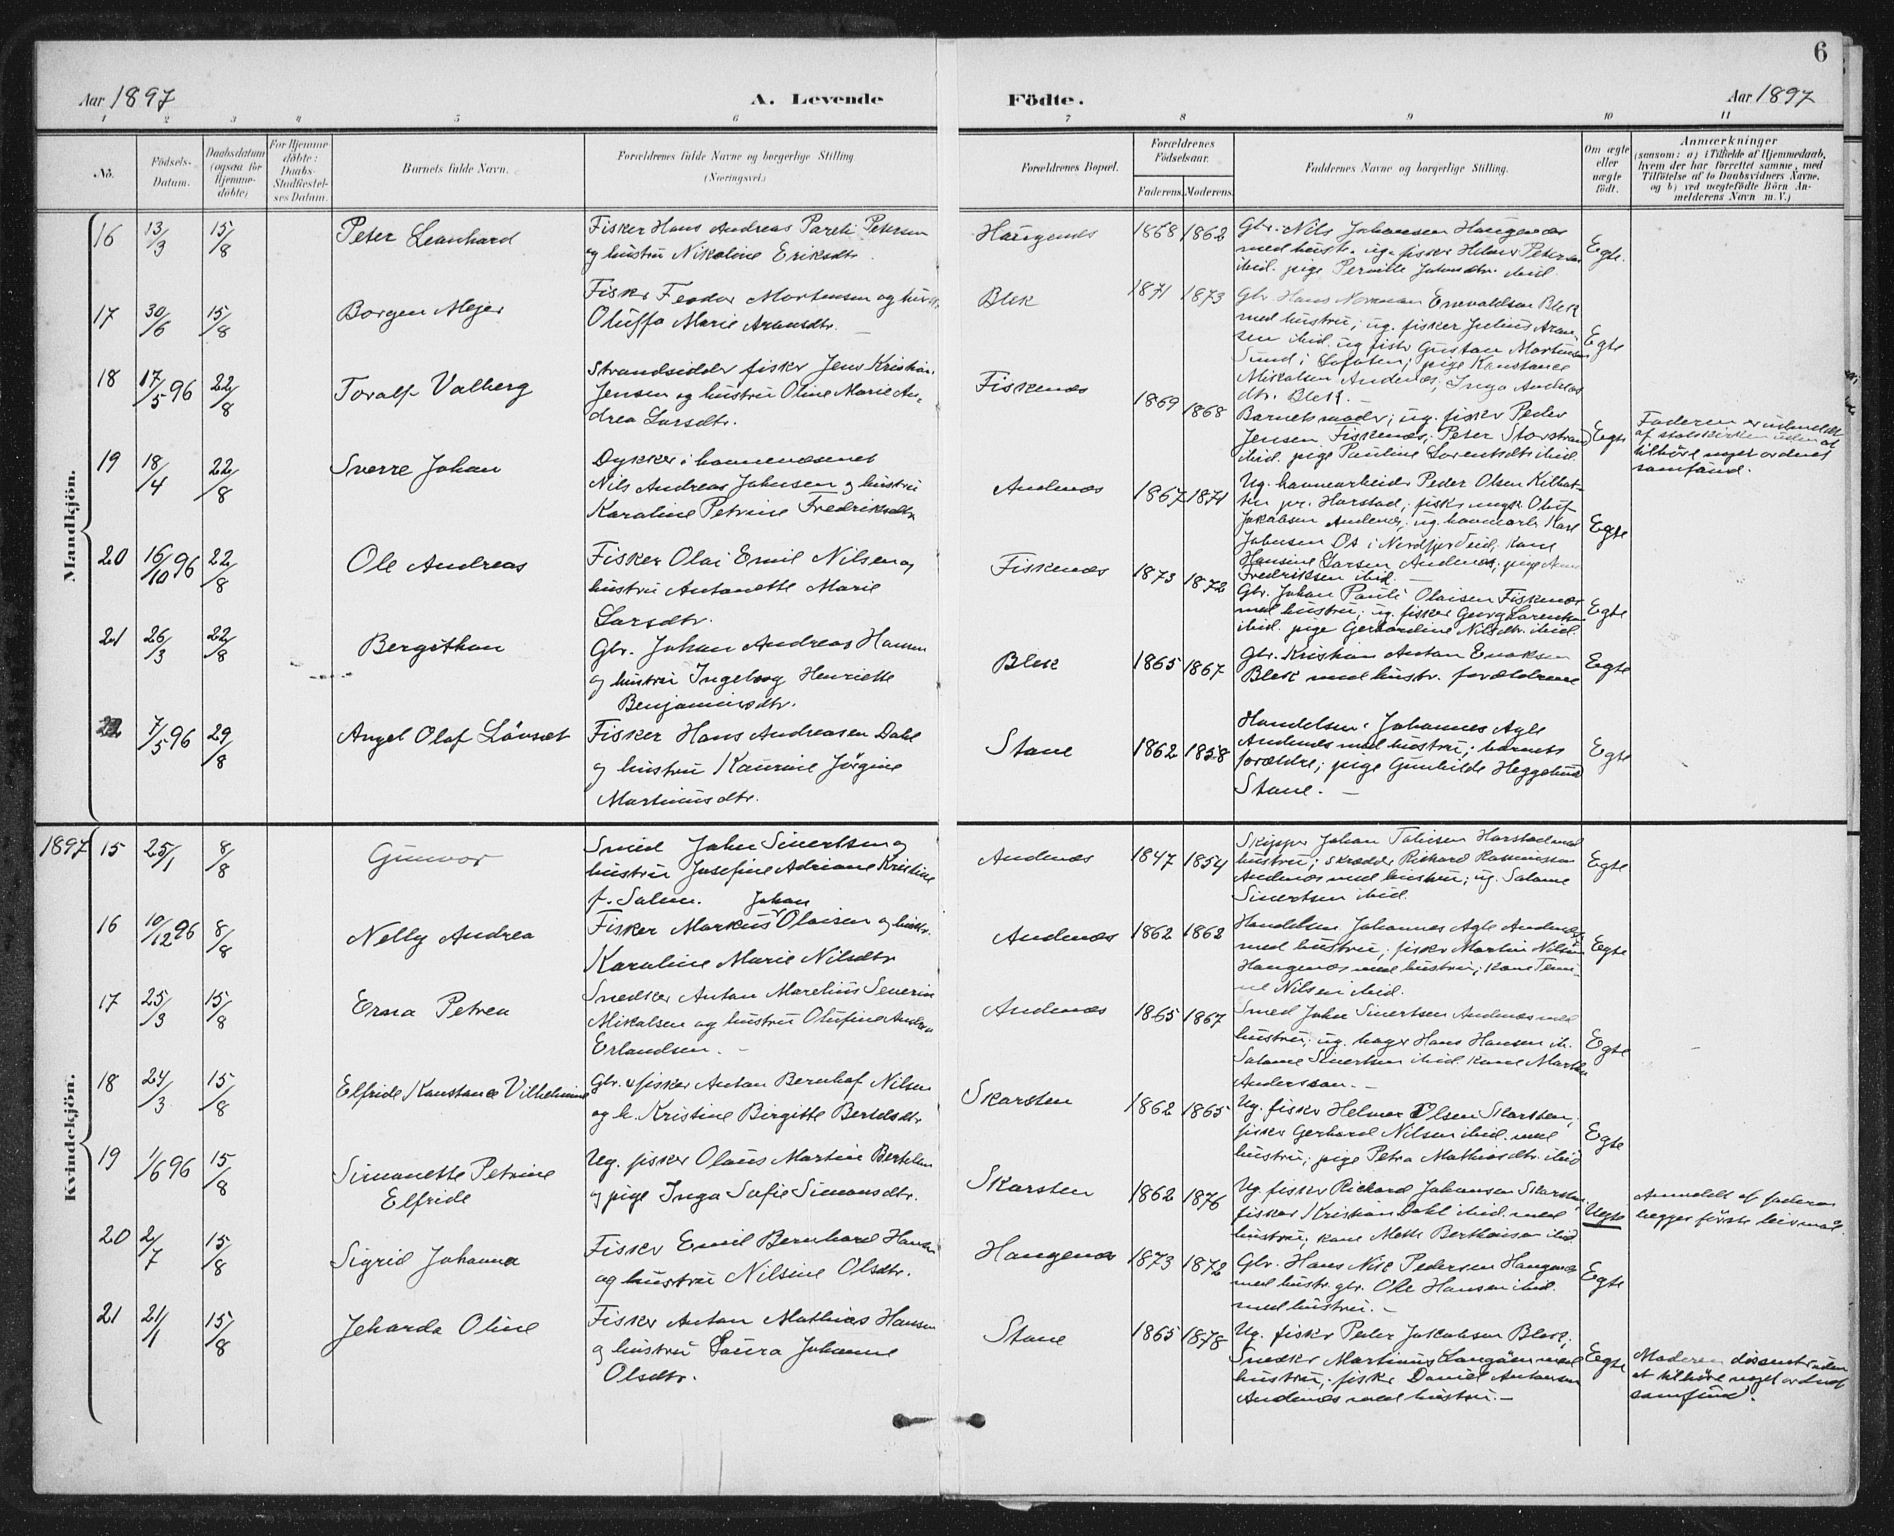 6
Aar 1897
A. Levende
Födte.
Aar 1897
1 2 3 4 5 6 7 8 9 10 11
No.
Födsels-
Datum.
Daabsdatum
(ogsaa for
Hjemme-
döbte)
For Hjemme
döbte:
Daabs-
Stadfæstel-
ses Datum.
Barnets fulde Navn.
Forældrenes fulde Navne og borgerlige Stilling
(Næringsvei.)
Forældrenes Bopæl.
Forældrenes
Födselsaar.
Faderens. Moderens.
Faddernes Navne og borgerlige Stilling.
Om ægte
eller
uægte
födt.
Anmærkninger
(saasom: a) i Tilfælde af Hjemmedaab,
hvem der har forrettet samme, med
Tilföielse af to Daabsvidners Navne.
og b) ved uægtefödte Börn An-
melderens Navn m. V.)
Mandkjön.
16 13/3 15/8 Peter Leonhard
Fisker Hans Andreas Pareli Petersen
og hustru Nikoline Eriksdtr.
Haugenes 1868 1862
Gbr. Nils Johansen Haugenes
med hustr. ug. fisker Helmer Petersen
ibid. pige Pernille Johnsdtr. ibid.
Egte.
17 30/6 15/8 Borgen Mejer
Fisker Feodor Mortensen og hustr.
Oluffa Marie Aronsdtr.
Blek 1871 1873
Gbr Hans Norman Enevoldsen Blek
med hustru; ug. fisker Julius Aron-
sen ibid. ug fisker Gustav Mortensen
Sund i Lofoten; pige Konstance
Mikalsen Andenes; Inga Anders
dtr. Blek.
Egte
18 17/5 96 22/8 Toralf Valberg
Strandsidder fisker Jens Kristian
Jensen og hustru Oline Marie An-
drea Larsdtr.
Fiskenæs 1869 1868
Barnets moder; ug. fisker Peder
Jensen Fiskenæs, Peter Storstrand
ibid. pige Pauline Lorentsdtr. ibid.
Egte
Faderen er udmeldt
af statskirken uden at
tilhöre noget ordnet
samfund.
19 18/4 22/8 Sverre Johan
Dykker i havnevæsenet
Nils Andreas Johnsen og hustru
Karoline Petrine Fredriksdtr.
Andenæs 1867 1871
Ug. havnearbeider Peder Olsen Kilbot-
ten pr. Harstad; fisker Oluf
Jakobsen Andenæs; ug. havnearb. Karl
Johnsen Os i Nordfjordeid; kone
Hansine Larsen Andenæs; pige
Fredriksen ibid.
Egte
20 16/10 96 22/8 Ole Andreas
Fisker Olai Emil Nilsen og
hustru Antonette Marie
Larsdtr.
Fiskenæs 1873 1872
Gbr. Johan Pauli Olaisen Fiskenæs
med hustru; ug. fisker Georg Lorentsen
ibid. pige Gerhardine Nilsdtr. ibid.
Egte
21 26/3 22/8 Bergithon
Gbr. Johan Andreas Hansen
og hustru Ingeborg Henriette
Benjaminsdtr.
Blek 1865 1867
Gbr. Kristian Anton Enoksen
Blek med hustr. forældrene
Egte
22 7/5 96 29/8 Angel Olaf Lövset
Fisker Hans Andreasen Dahl
og hustru Kaurine Jörgine
Martinusdtr.
Stave 1862 1858
Handelsm. Johannes Agle
Andenes med hustru; barnets
forældre; pige Gunhilde Heggelund
Stave.
Egte
Kvindekjön.
1897 15 25/1 8/8 Gunvor
Smed John Sivertsen og
hustru Josefine Adriane Kristine
f. Salom.
Andenæs 1847 1854
Skipper Johan Harstad med
hustru; skrædder Rikhard Rasmussen
Andenæs med hustru; ug. Salome
Sivertsen ibid.
Egte
16 10/12 96 8/8 Nelly Andrea
Johan
Fisker Markus Olaisen og hustr.
Karoline Marie Nilsdtr
Andenæs 1862 1862
Handelsm Johannes Agle Andenæs
med hustru; fisker Martin Nilsen
Haugenæs med hustru; kone
Nilsen ibid.
Egte
17 25/3 15/8 Erna Petrea
Snedker Anton Marelius Severin
Mikalsen og hustru Olufine Andrea
Erlandsen.
Andenæs 1865 1867
Smed John Sivertsen Andenæs med
hustru; ug. bager Hans Hansen ib.
Salome Sivertsen ibid. kone Marta
Anderssan.
Egte
18 24/3 15/8 Elfride Konstance Vilhelmine
Gbr. & fisker Anton Bernhof Nilsen
og h. Kristine Birgitte Bertelsdtr.
Skarsten 1862 1865
Ug. fisker Helmer Olsen Skarsten,
fisker Gerhard Nilsen ibid. med
hustru; pige Petra Mathiasdtr. ibid
Egte
19 1/6 96 15/8 Simonette Petrine
Elfride
Ug. fisker Olaus Martin Bertelsen
og pige Inga Sofie Simonsdtr.
Skarsten 1862 1876
Ug fisker Rickard Johansen Skarsten,
fisker Kristian Dahl ibid. med
hustru; kone Mette Berthinsen ibid
Uegte
Anmeldt af faderen
begges förste leiermaal.
20 2/7 15/8 Sigrid Johanna
Fisker Emil Bernhard Hansen
og hustru Nilsine Olsdtr.
Haugenæs 1873 1872
Gbr. Hans Nik Pedersen Haugenæs
med hustr. gbr. Ole Hansen ibid.
med hustru.
Egte
21 21/1 15/8 Jeharda Oline
Fisker Anton Mathias Hansen
og hustru Laura Johanne
Olsdtr.
Stave 1865 1878
Ug. fisker Peder Jakobsen Blek;
Snedker Martinus Langåen med
hustru; fisker Daniel Antonsen
Andenæs med hustru.
Egte
Moderen dissenter uden
at tilhöre noget ordnet
samfund.